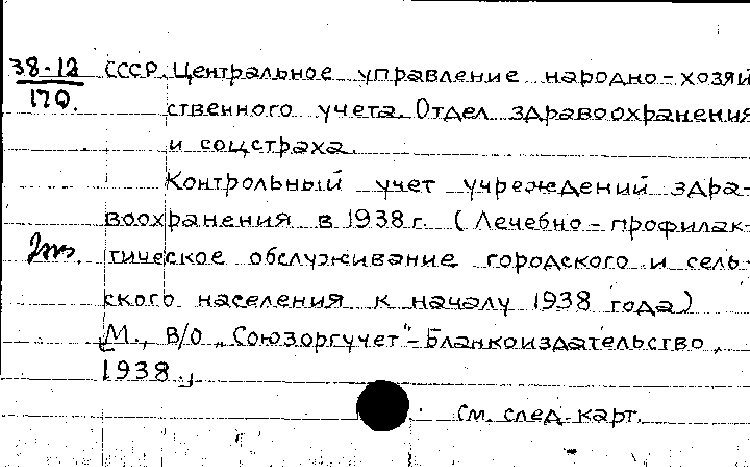 38-12 СССР. Центральное управление народно-хозяй
170. ственного учета. Отдел здравоохранения
и соцстраха.
Контрольный учет учреждений здра-
воохранения в 1938 г. (Лечебно-профилак-
тическое обслуживание городского и сель-
ского населения к началу 1938 года)
М., В/О „Союзоргучет"-Бланкоиздательство,
1938.,
См. след. карт.